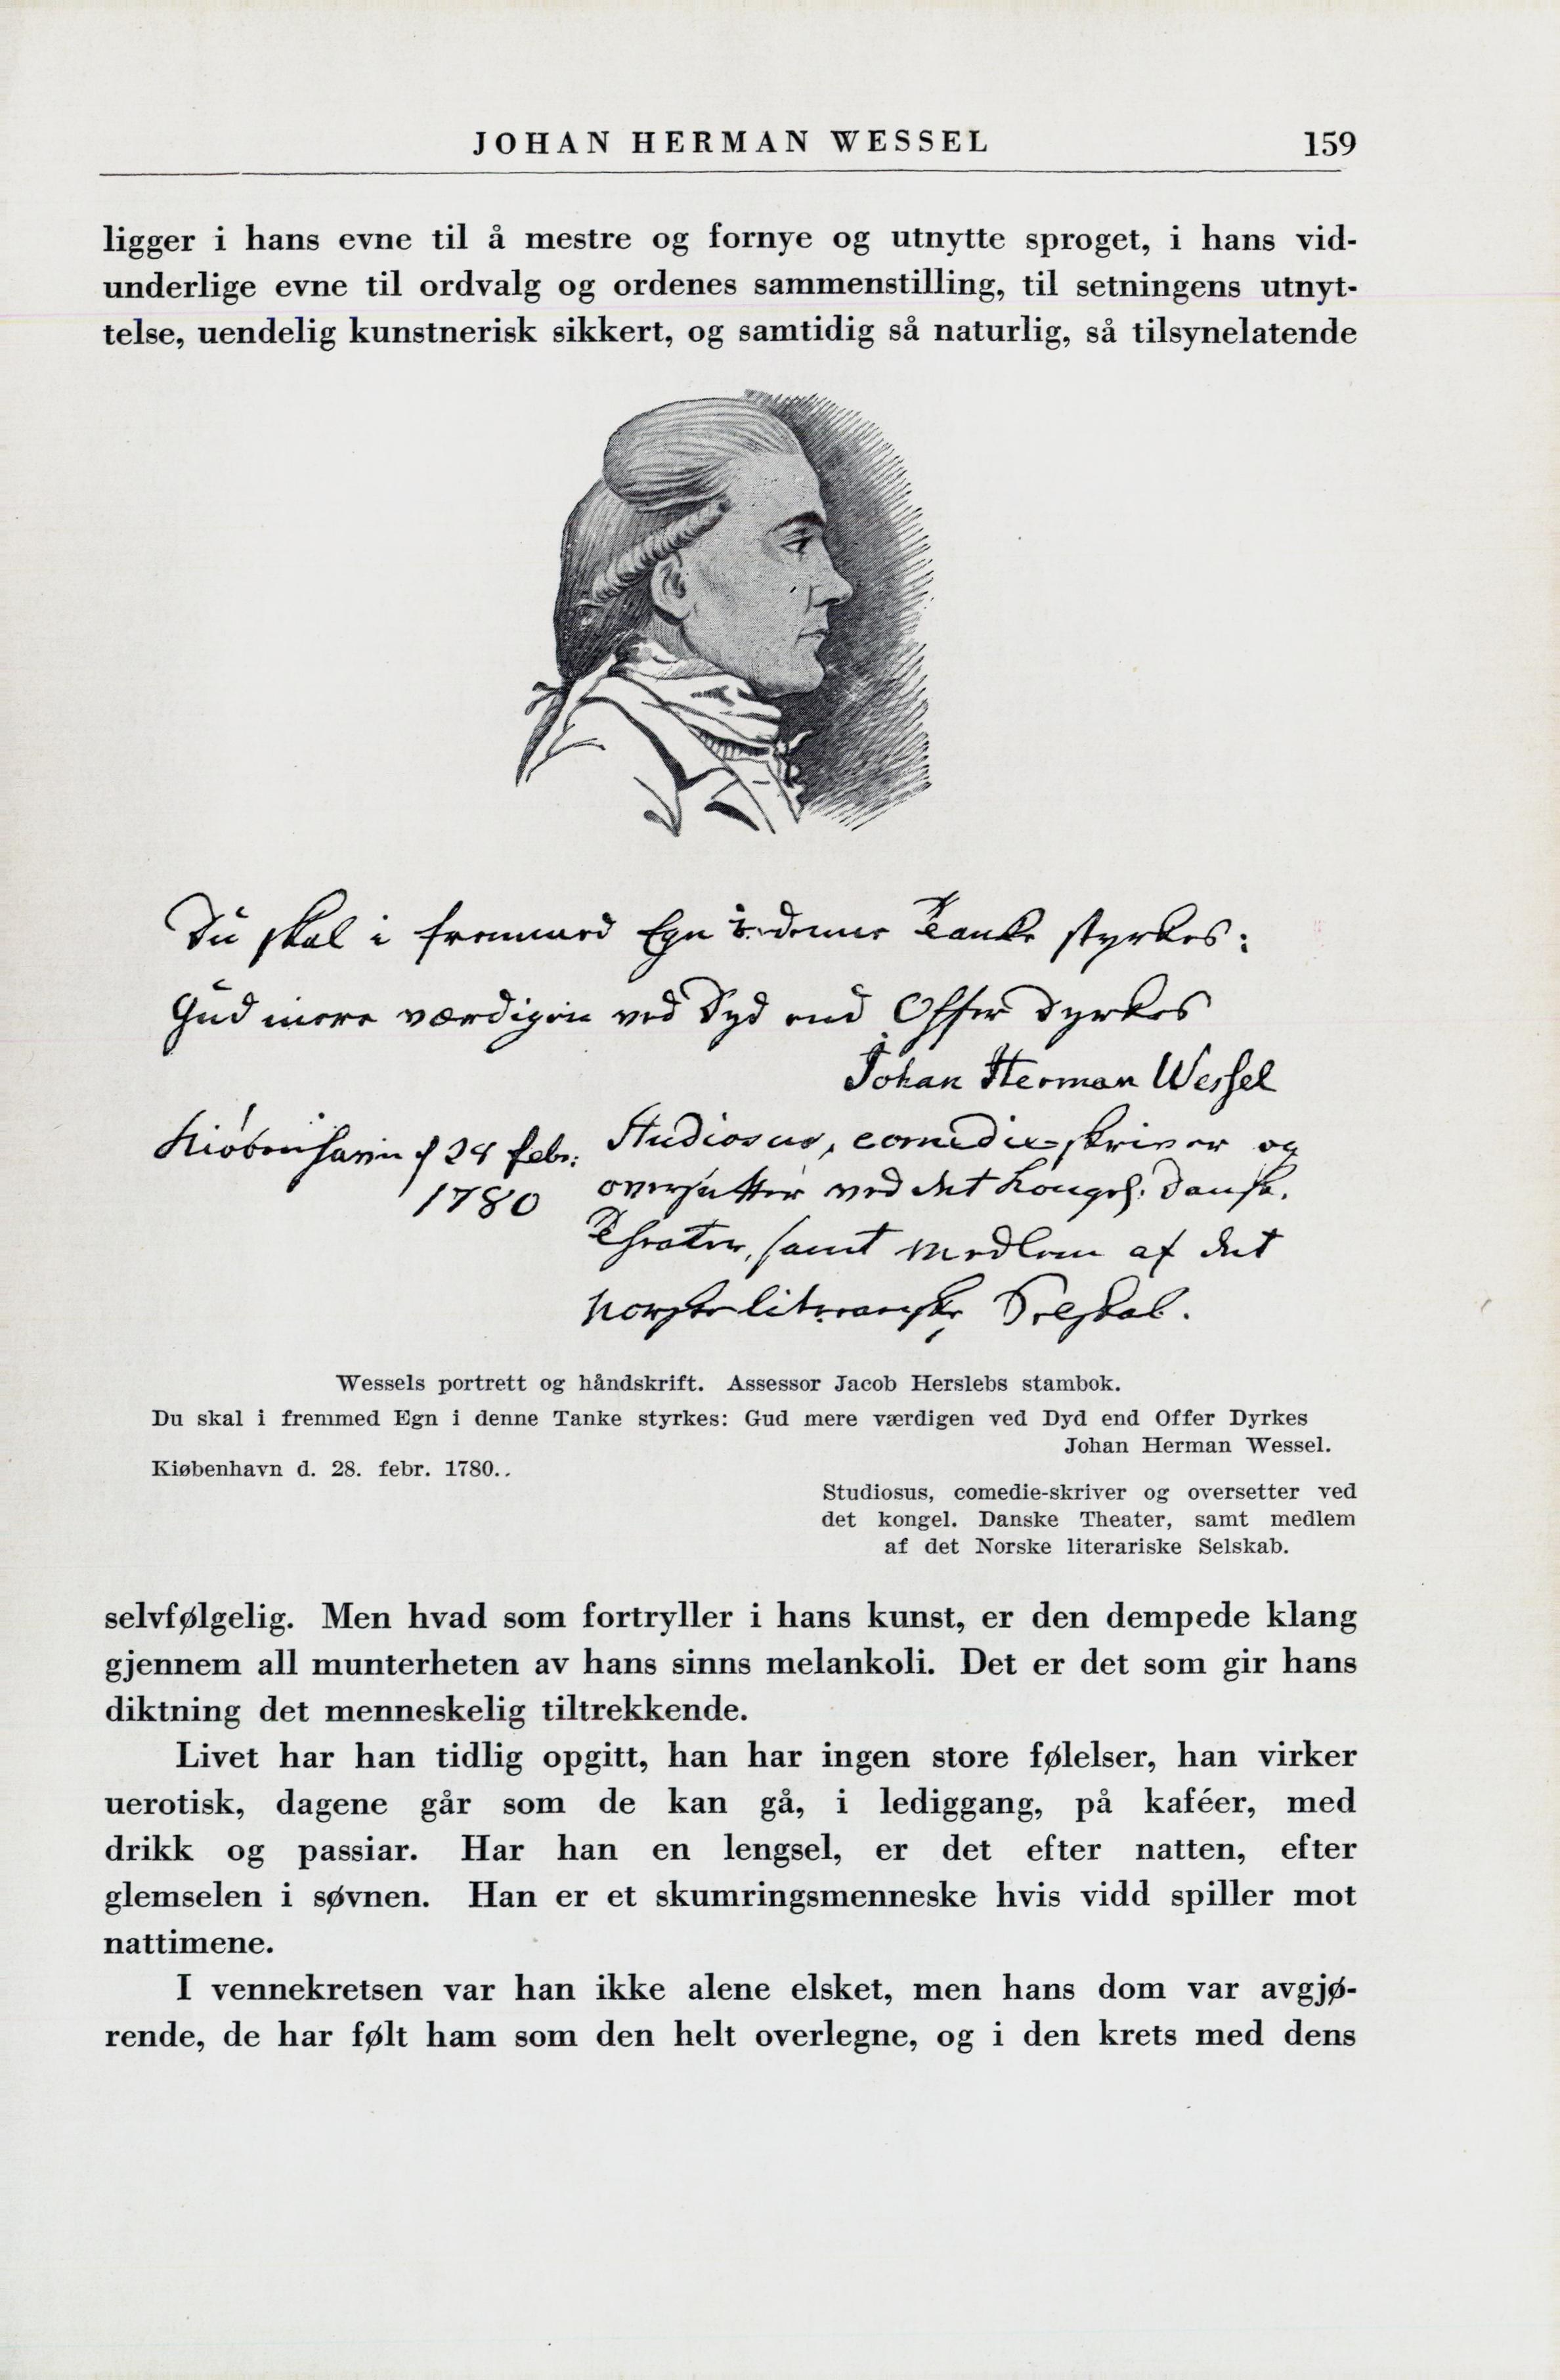 JOHAN HERMAN WESSEL 159
ligger i hans evne til å mestre og fornye og utnytte sproget, i hans vid-
underlige evne til ordvalg og ordenes sammenstilling, til setningens utnyt-
telse, uendelig kunstnerisk sikkert, og samtidig så naturlig, så tilsynelatende
Du skal i fremmed Egn i denne Tanke styrkes:
Gud mere værdigen ved Dyd end Offer Dyrkes
Johan Herman Wessel
Kiøbenhavn d 28 febr:
1780
Studiosus, comedie-skriver og
oversetter ved det kongel: Danske.
Theater, samt medlem af det
Norske literariske Selskab.
Wessels portrett og håndskrift. Assessor Jacob Herslebs stambok.
Du skal i fremmed Egn i denne Tanke styrkes: Gud mere værdigen ved Dyd end Offer Dyrkes
Johan Herman Wessel.
Kiøbenhavn d. 28. febr. 1780..
Studiosus, comedie-skriver og oversetter ved
det kongel. Danske Theater, samt medlem
af det Norske literariske Selskab.
selvfølgelig. Men hvad som fortryller i hans kunst, er den dempede klang
gjennem all munterheten av hans sinns melankoli. Det er det som gir hans
diktning det menneskelig tiltrekkende.
Livet har han tidlig opgitt, han har ingen store følelser, han virker
uerotisk, dagene går som de kan gå, i lediggang, på kaféer, med
drikk og passiar. Har han en lengsel, er det efter natten, efter
glemselen i søvnen. Han er et skumringsmenneske hvis vidd spiller mot
nattimene.
I vennekretsen var han ikke alene elsket, men hans dom var avgjø-
rende, de har følt ham som den helt overlegne, og i den krets med dens